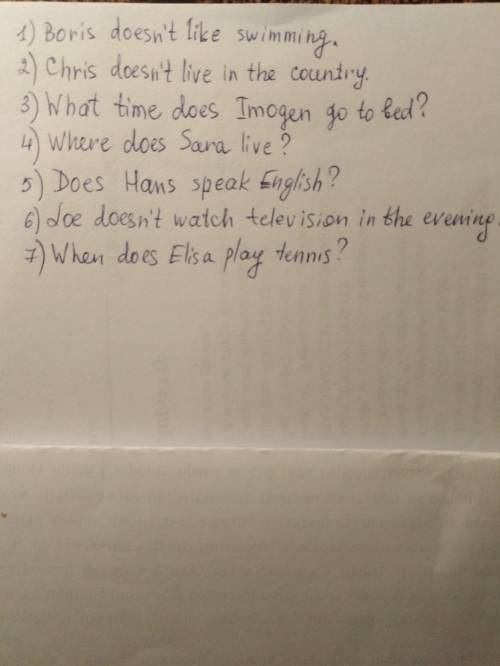 1) Boris doesn't like swimming.
2) Chris doesn't live in the country.
3) What time does Imogen go to bed?
4) Where does Sara live?
5) Does Hans speak English?
6) Joe doesn't watch television in the evening.
7) When does Elisa play tennis?